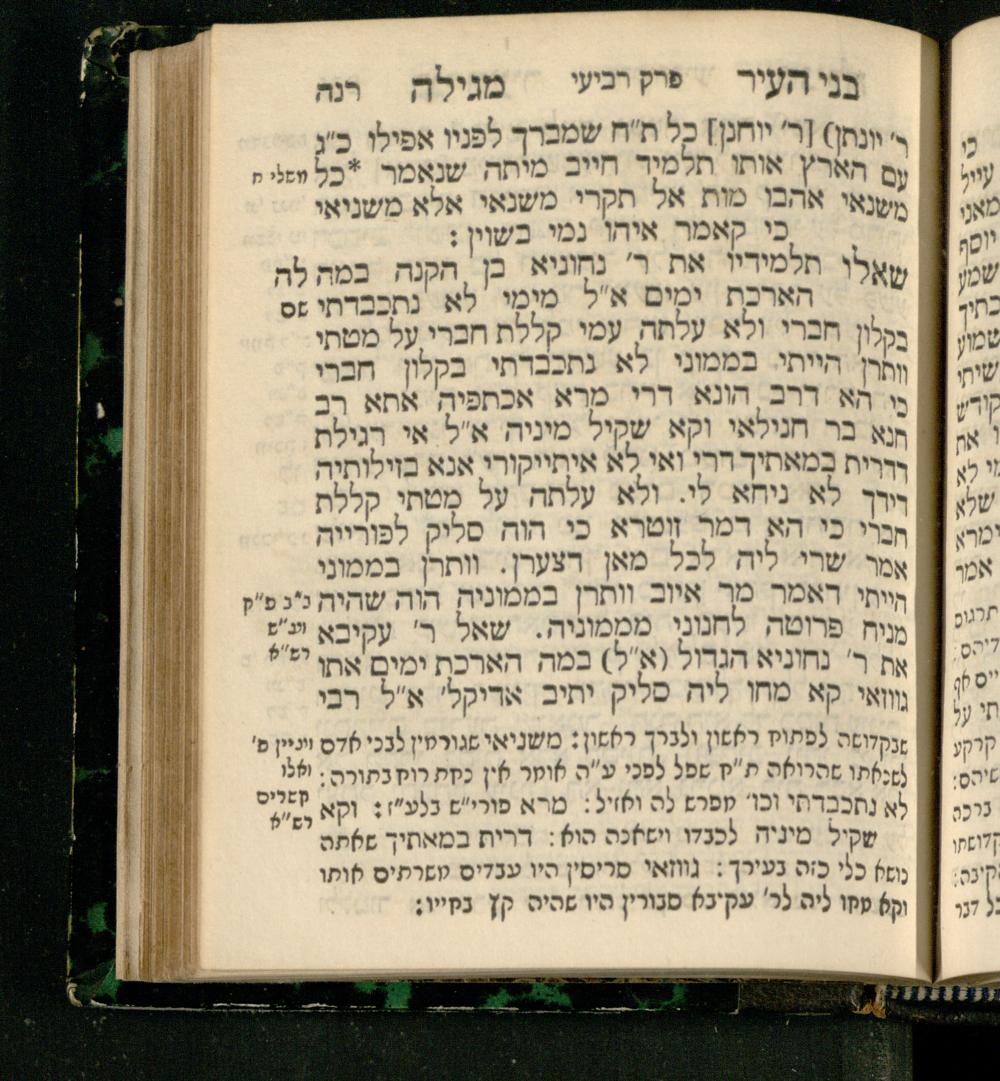 בני העיר פרק רביעי מגילה רנה
ר׳ יונתן) [ר׳ יוחנן] כל ת״ח שמברך לפניו אפילו כ״ג
עם הארץ אותו תלמיד חייב מיתה שנאמר *כל משלי ח
משנאי אהבו מות אל תקרי משנאי אלא משניאי
כי קאמר איהו נמי בשוין :
שאלו תלמידיו את ר׳ נחוניא בן הקנה במה לה
הארכת ימים א״ל מימי לא נתכבדתי שם
בקלון חברי ולא עלתה עמי קללת חברי על מטתי
וותרן הייתי בממוני לא נתכבדתי בקלון חברי
כי הא דרב הונא דרי מרא אכתפיה אתא רב
חנא בר חנילאי וקא שקיל מיניה א״ל אי רגילת
דדרית במאתיך דרי ואי לא איתייקורי אנא בזילותיה
דידך לא ניחא לי. ולא עלתה על מטתי קללת
חברי כי הא דמר זוטרא כי הוה סליק לפורייה
אמר שרי ליה לכל מאן דצערן. וותרן בממוני
הייתי דאמר מר איוב וותרן בממוניה הוה שהיה ב״ב פ״ק
מניח פרוטה לחנוני מממוניה. שאל ר׳ עקיבא וע״ש
את ר׳ נחוניא הגדול (א״ל) במה הארכת ימים אתו רש״א
גווזאי קא מחו ליה סליק יתיב אדיקל׳ א״ל רבי
שבקדושה לפתוח ראשון ולברך ראשון: משניאי שגורמין לבני אדם ועניין פ׳
לשנאתו שהרואה ת״ח שפל לפני ע״ה אומר אין נחת רוח בתורה: ואלו
לא נתכבדתי וכו׳ מפרש לה ואזיל: מרא פורי״ש בלע״ז: וקא קשרים
שקיל מיניה לכבדו וישאנה הוא: דרית במאתיך שאתה רש״א
נושא כלי כזה בעירך: גווזאי סריסין היו עבדים משרתים אותו
וקא מחו ליה לר׳ עקיבא סבורין היו שהיה קץ בחייו: